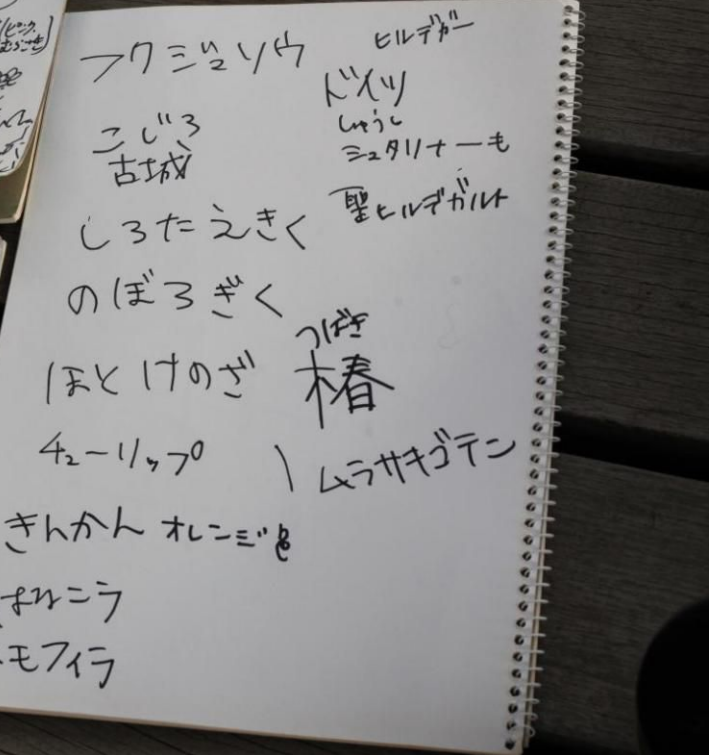 フクジュソウ
ヒルデガー
ドイツ
しゅうし
シュタリナーも
聖ヒルデガルト
こじろ
古城
しろたえきく
のぼろぎく
ほとけのざ
つばき
椿
チューリップ
ムラサキゴテン
きんかん オレンジ色
はなニラ
モフィラ